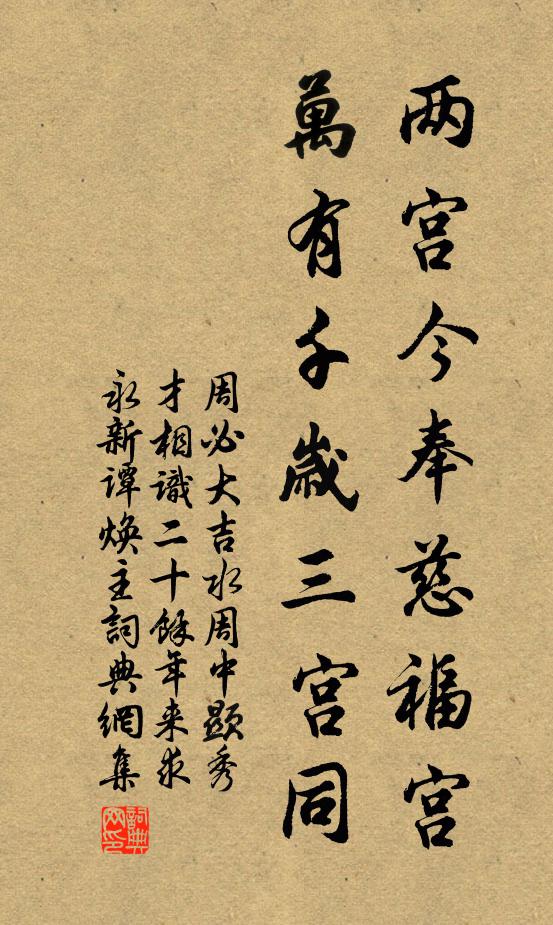 两宫今奉慈福宫
萬有千歲三宫同
周必大吉水周中顯秀
才相識二十餘年来求
永新譚焕主詞典網集
詞典网印